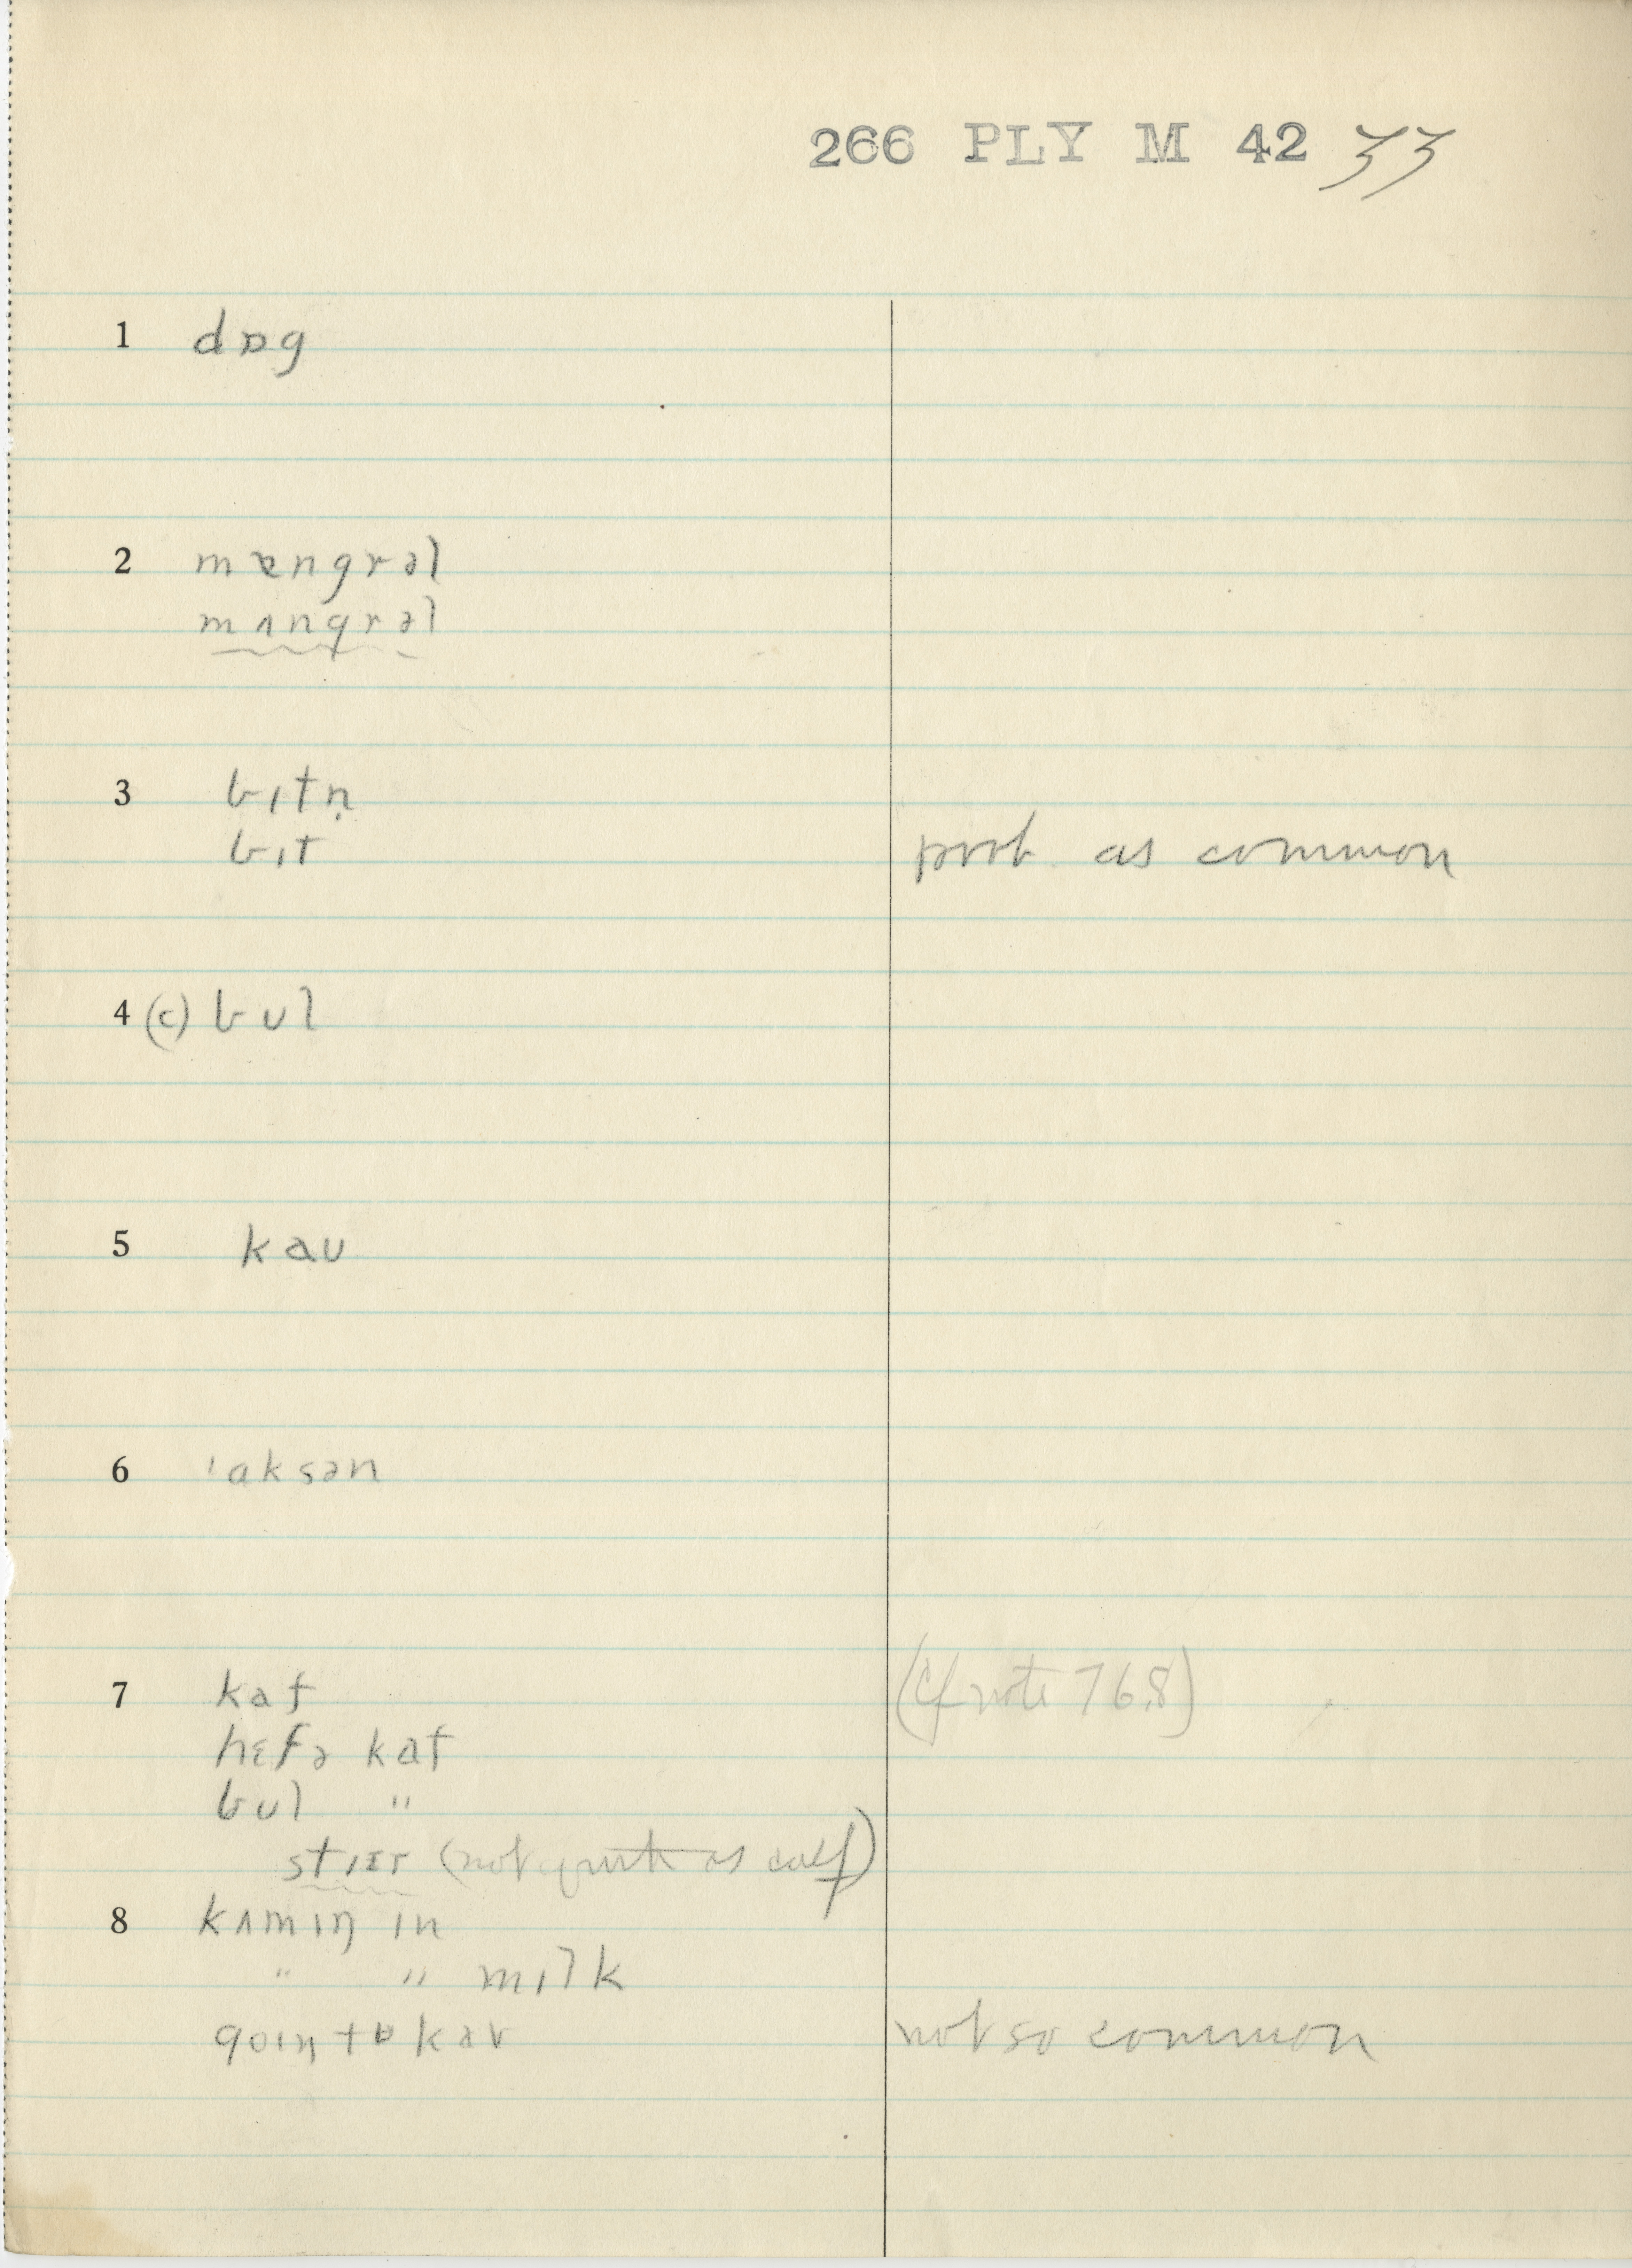 266 PLY M 42 33
1 dɒg
2 mɐngrəl
mʌngrəl
3 bɪtn̩
bɪt prob. as common
4 (c) bʊl
5 kaʊ
6 ˈaksən
7 kaf (Cf note 76.8)
hɛfə kaf
bʊl "
stɪɛr (not quite as calf)
8 kʌmɪŋ ɪn
" " mɪlk
goɪŋ tə kav not so common